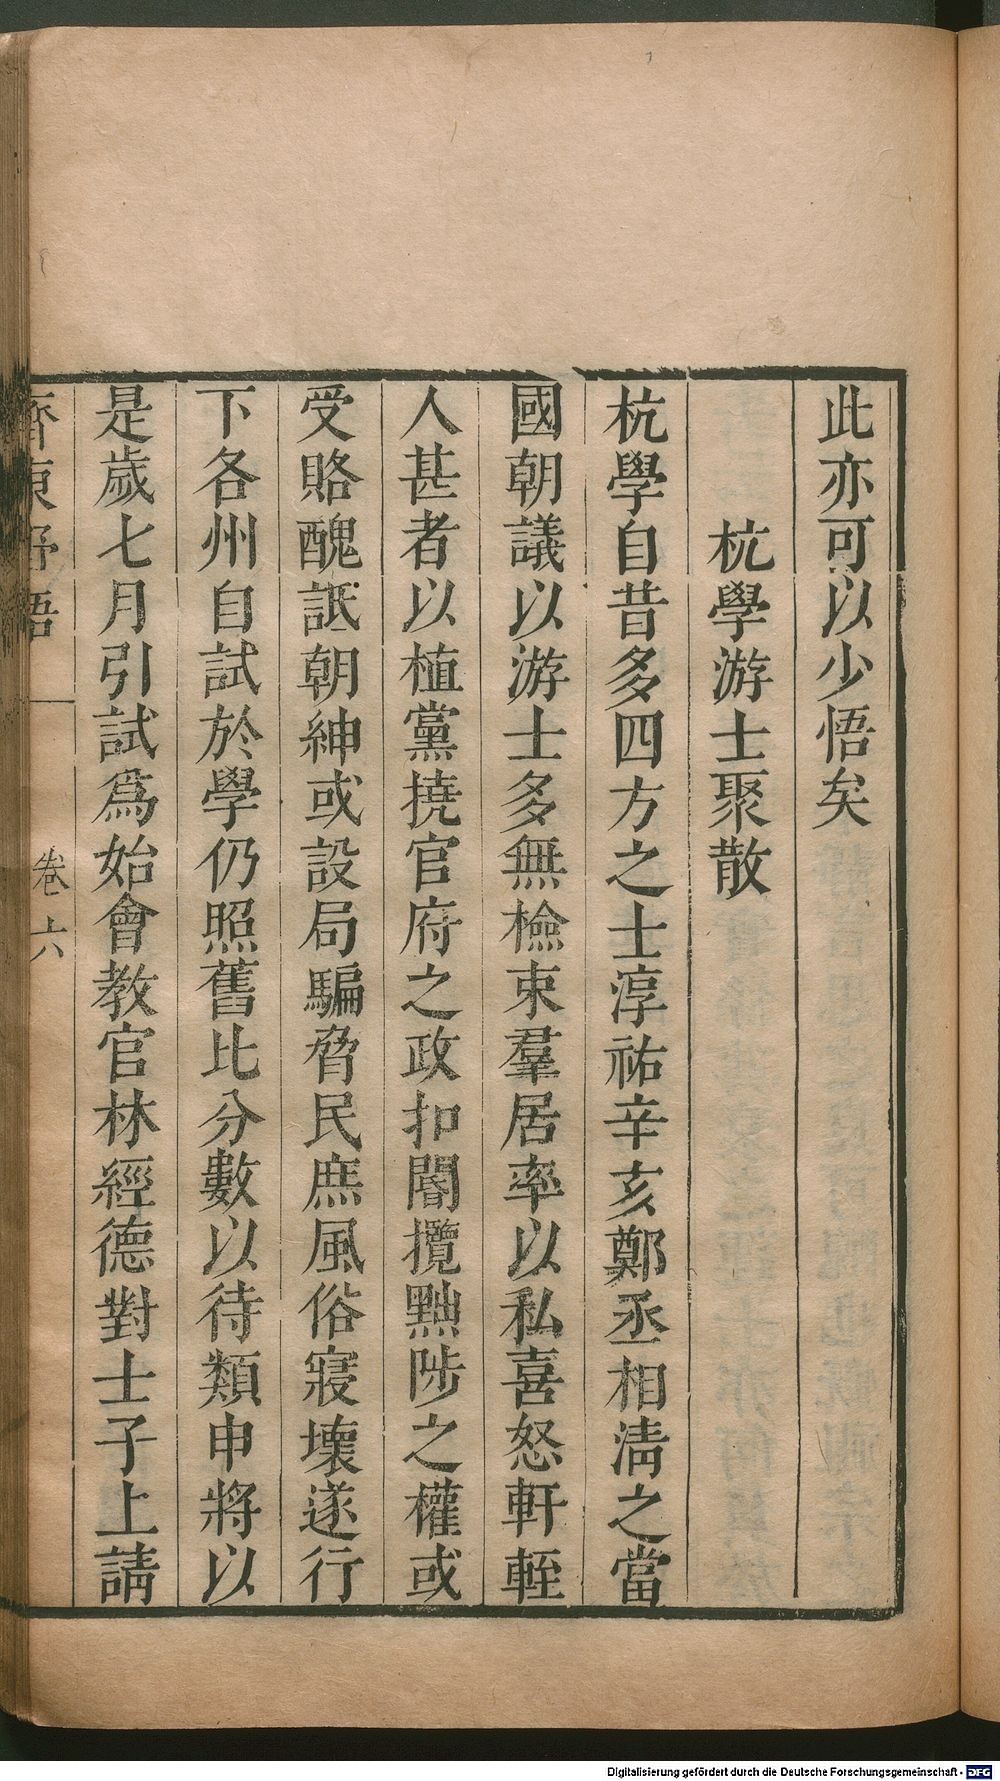 此亦可以少悟矣
杭學游士聚散
杭學自昔多四方之士淳祐辛亥鄭丞相淸之當
國朝議以游士多無檢束羣居率以私喜怒軒輊
人甚者以植黨撓官府之政扣閽攬黜陟之權或
受賂醜詆朝紳或設局騙脅民庶風俗寢壞遂行
下各州自試於學仍照舊比分數以待類申將以
是歲七月引試爲始會教官林經德對士子上請
齊東野語
卷六
Digitalisierung gefördert durch die Deutsche Forschungsgemeinschaft - DFG